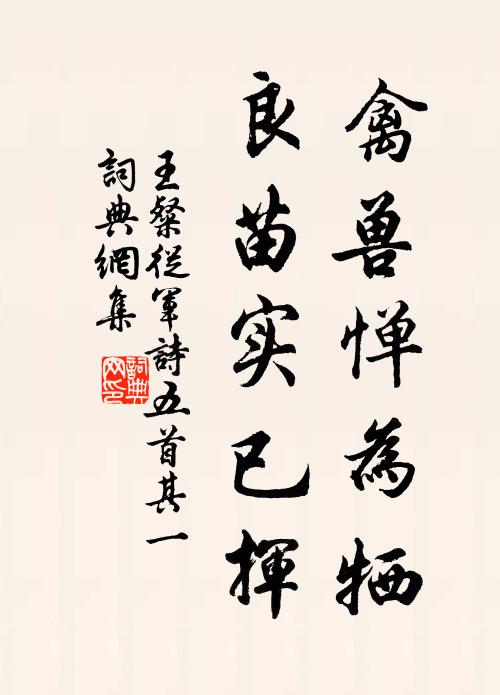 禽兽惮為牺
良苗实已揮
王粲從軍詩五首其一
詞典網集
詞典網印